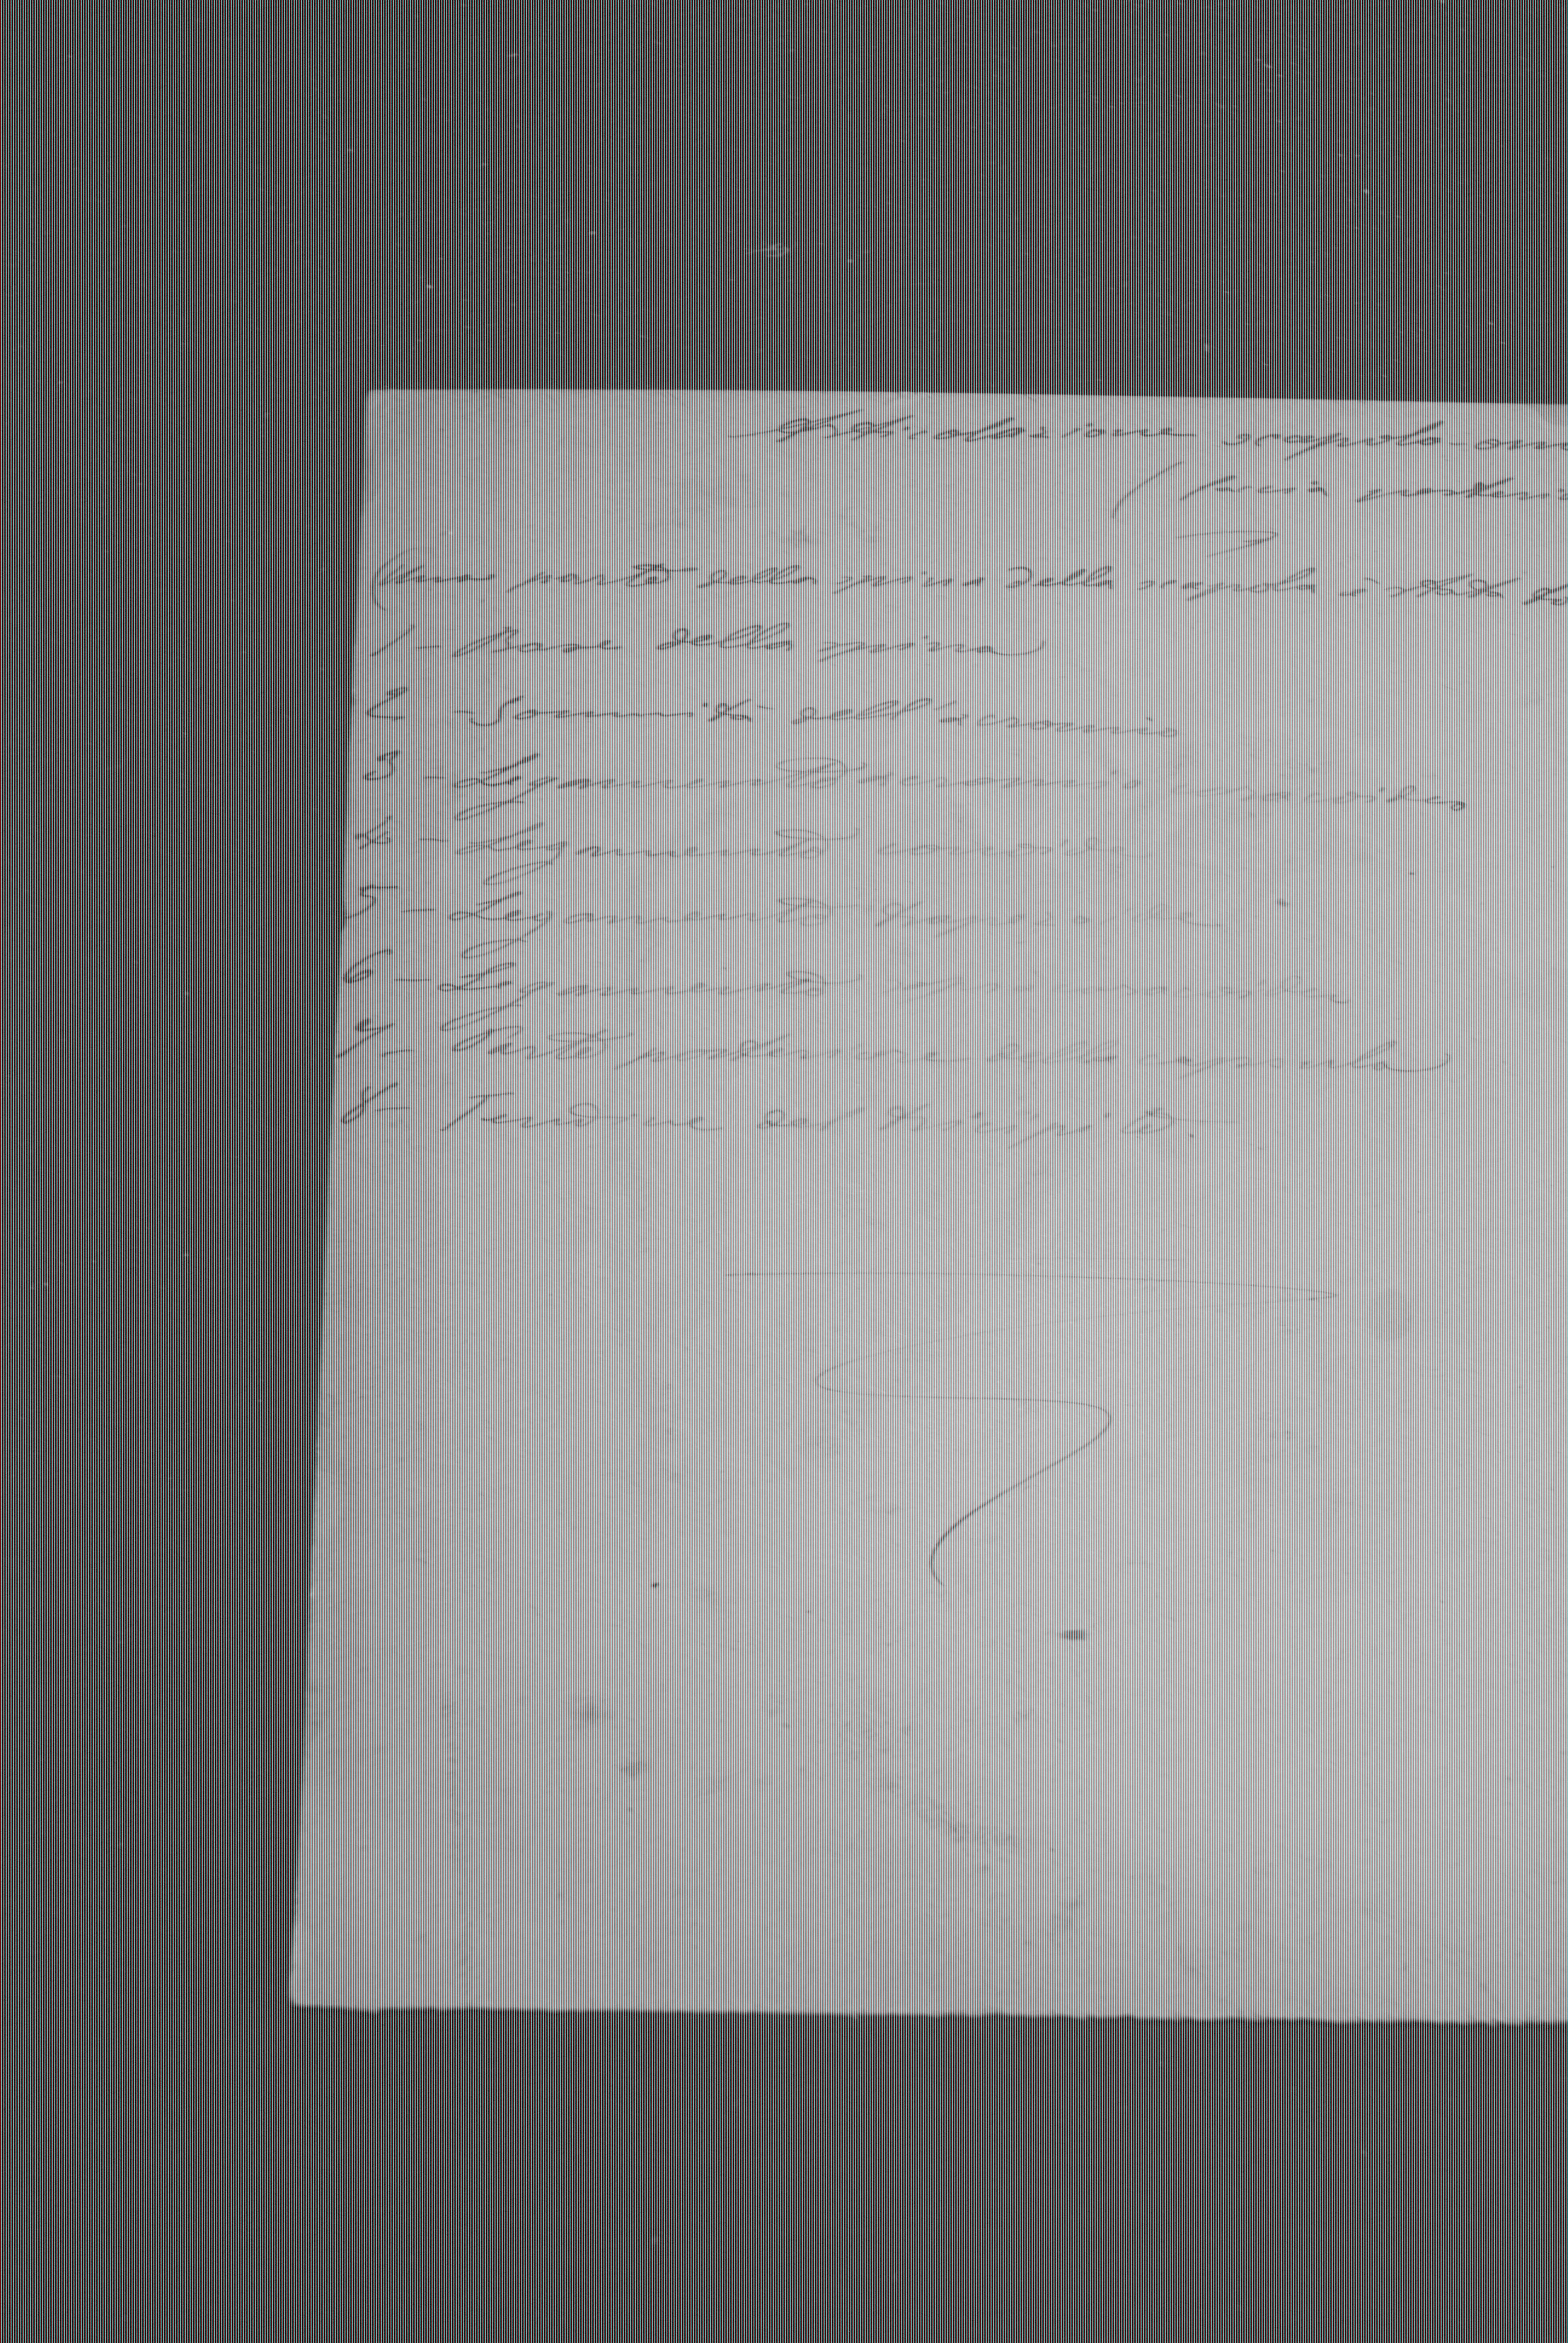 Articolazione scapolo-om
(faccia posteri
(Una parte della spina della scapola è stata
1 - Base della spina
2 - Sommità dell'acromio
3 - Legamento acromio coracoideo
4 - Legamento conoide
5 - Legamento trapezoide
6 - Legamento
7 - Parte posteriore della capsula
8 - Tendine del tricipite.